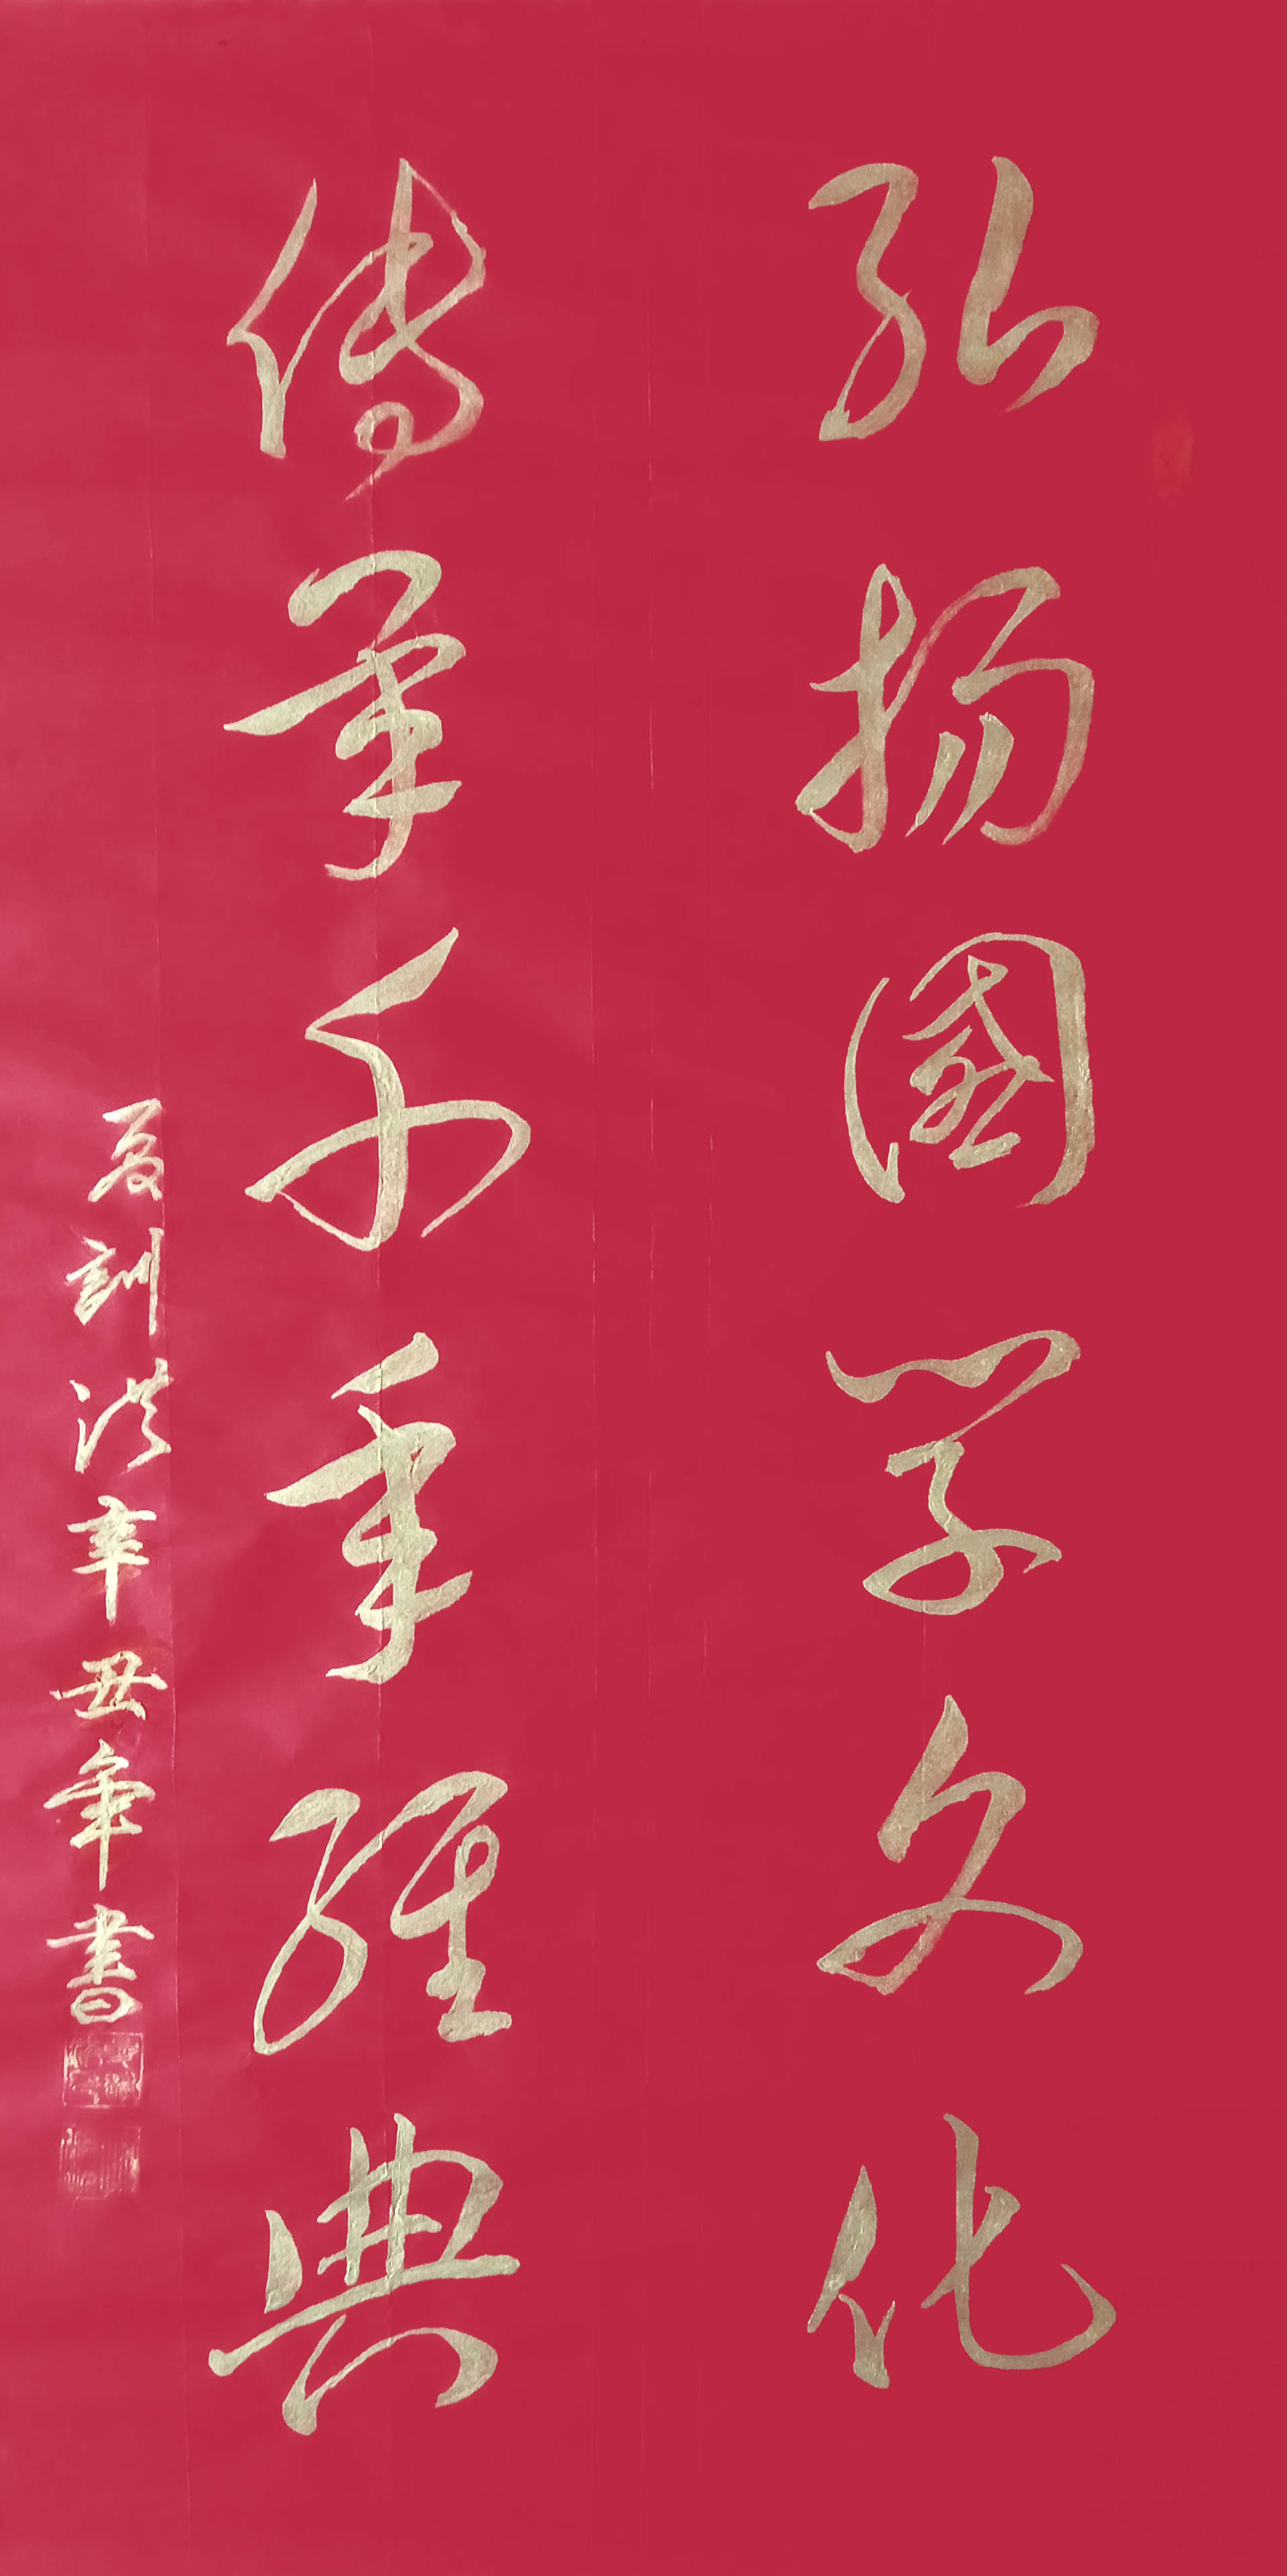 弘扬國学文化
傳承千年經典
夏訓洪辛丑年書